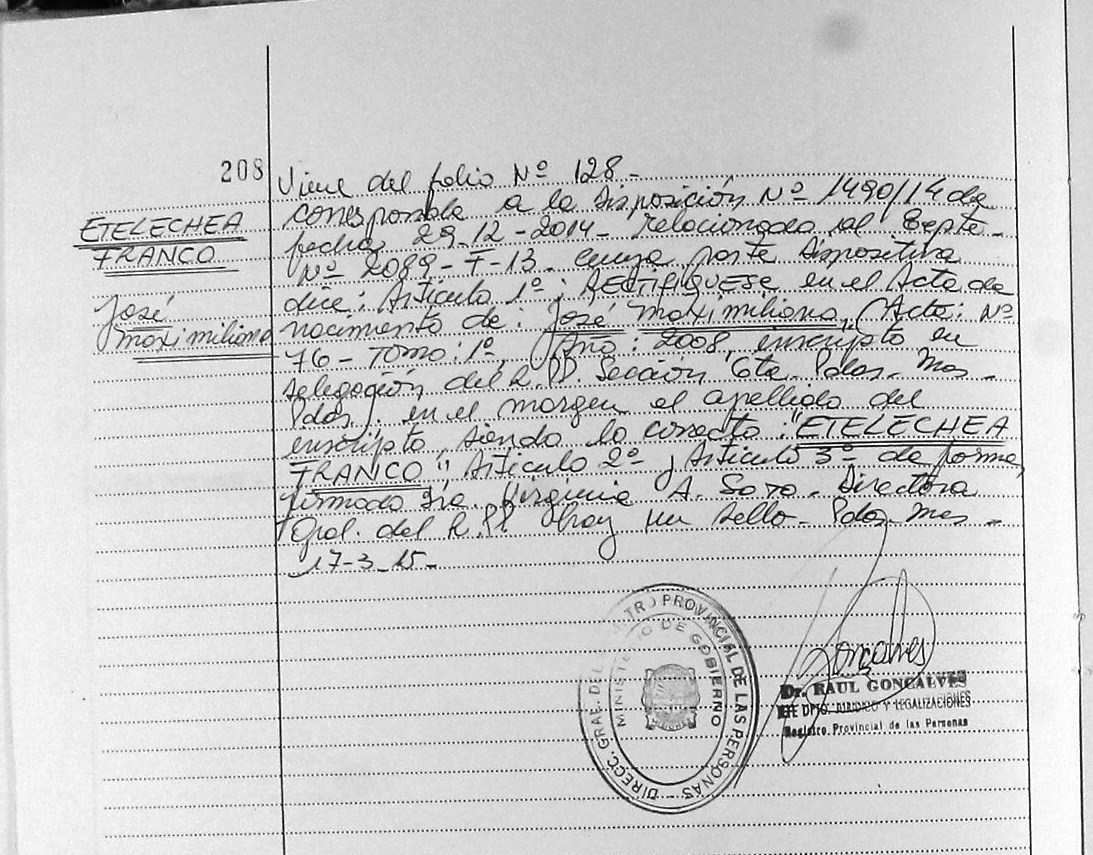 208
Viene del folio Nº 128 -
ETELECHEA
FRANCO
José
Maximiliano
corresponde a la Disposición Nº 1490/14 de
fecha 29-12-2014- Relacionada al Expte-
Nº 2089-F-13- cuya parte Dispositiva
dice: Artículo 1º: RECTIFIQUESE en el Acta de
nacimiento de: José Maximiliano, (Acta: Nº
76 - Tomo: 1º, Año: 2008, inscripto en
Delegación del R.PP. Sección 6ta. Pdas. Mns -
Pdas), en el margen el apellido del
inscripto, siendo lo correcto: "ETELECHEA
FRANCO", Artículo 2º y Artículo 3º de forma,
firmado Dra. Virginia A. Directora
Gral. del R.PP. Hay un sello - Pdas. Mns -
17-3-15-
DIRECC. GRAL. DEL REGISTRO PROVINCIAL DE LAS PERSONAS
MINISTERIO DE GOBIERNO
MISIONES
Goncalves
Dr. RAUL GONCALVES
JEFE DPTO. JURIDICO Y LEGALIZACIONES
Registro Provincial de las Personas